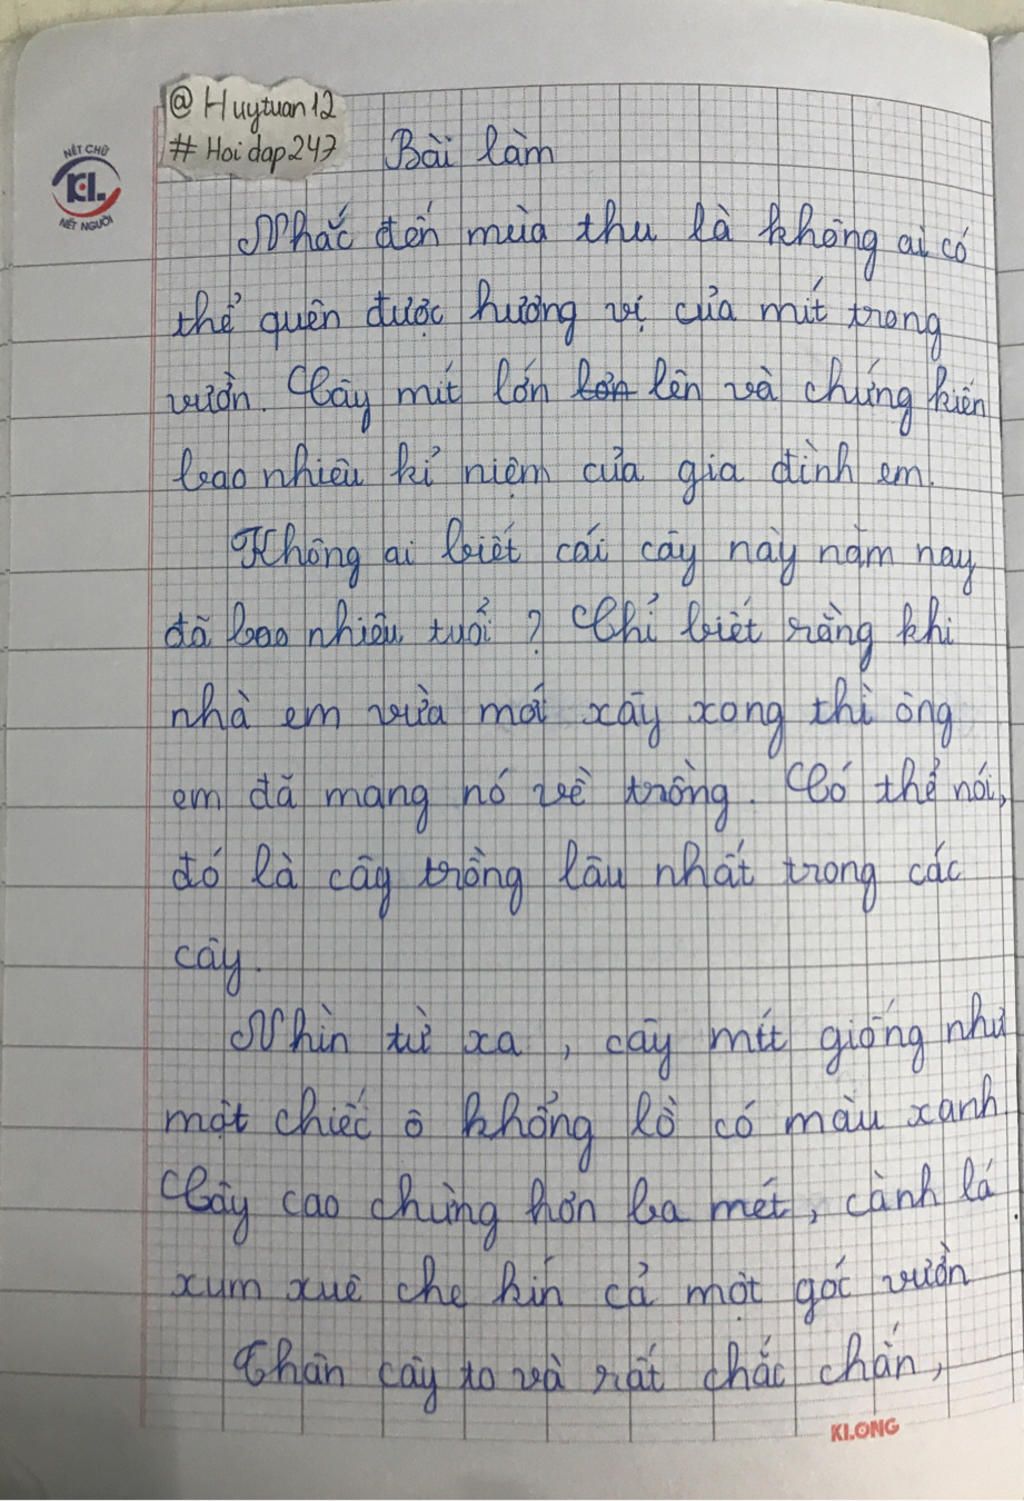 @Huytuan12
#Hoidap247
NÉT CHỮ
KL
NẾT NGƯỜI
Bài làm
Nhắc đến mùa thu là không ai có
thể quên được hương vị của mít trong
vườn. Cây mít lớn lớn lên và chứng kiến
bao nhiêu kỉ niệm của gia đình em.
Không ai biết cái cây này năm nay
đã bao nhiêu tuổi ? Chỉ biết rằng khi
nhà em vừa mới xây xong thì ông
em đã mang nó về trồng. Có thể nói,
đó là cây trồng lâu nhất trong các
cây.
Nhìn từ xa , cây mít giống như
một chiếc ô khổng lồ có màu xanh
Cây cao chừng hơn ba mét, cành lá
xum xuê che kín cả một góc vườn
Thân cây to và rất chắc chắn,
KLONG